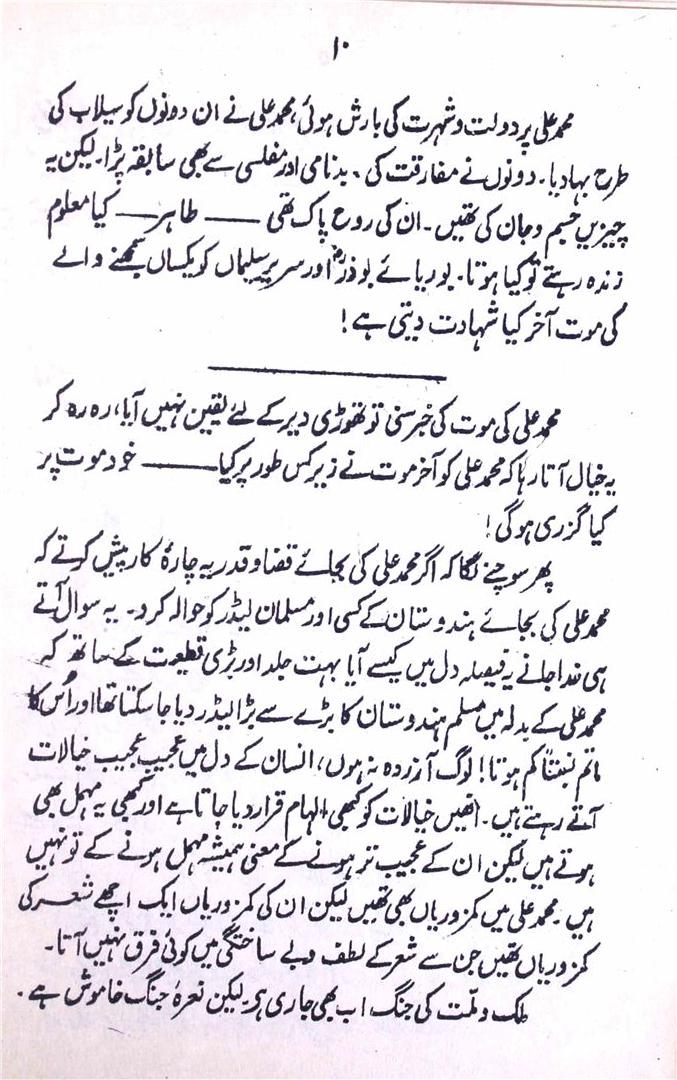 ۱۰
محمد علی پر دولت و شہرت کی بارش ہوئی، محمد علی نے ان دونوں کو سیلاب کی
طرح بہا دیا۔ دونوں نے مفارقت کی، بدنامی اور مفلسی سے بھی سابقہ پڑا۔ لیکن یہ
چیزیں جسم و جان کی تھیں۔ ان کی روح پاک تھی —— طاہر —— کیا معلوم
زندہ رہتے تو کیا ہوتا۔ بوریائے بوذرؓ اور سریر سلیماں کو یکساں سمجھنے والے
کی موت آخر کیا شہادت دیتی ہے!
محمد علی کی موت کی خبر سنی تو تھوڑی دیر کے لئے یقین نہیں آیا، رہ رہ کر
یہ خیال آتا رہا کہ محمد علی کو آخر موت نے زیر کس طور پر کیا —— خود موت پر
کیا گزری ہو گی!
پھر سوچنے لگا کہ اگر محمد علی کی بجائے قضا و قدر یہ چارۂ کار پیش کرتے کہ
محمد علی کی بجائے ہندوستان کے کسی اور مسلمان لیڈر کو حوالہ کر دو۔ یہ سوال آتے
ہی خدا جانے یہ فیصلہ دل میں کیسے آیا بہت جلد اور بڑی قطعیت کے ساتھ کہ
محمد علی کے بدلہ میں مسلم ہندوستان کا بڑے سے بڑا لیڈر دیا جا سکتا تھا اور اُس کا
ماتم نسبتاً کم ہوتا! لوگ آزردہ نہ ہوں، انسان کے دل میں عجیب عجیب خیالات
آتے رہتے ہیں۔ انھیں خیالات کو کبھی الہام قرار دیا جاتا ہے اور کبھی یہ مہمل بھی
ہوتے ہیں لیکن ان کے عجیب تر ہونے کے معنی ہمیشہ مہمل ہونے کے تو نہیں
ہیں۔ محمد علی میں کمزوریاں بھی تھیں لیکن ان کی کمزوریاں ایک اچھے شعر کی
کمزوریاں تھیں جن سے شعر کے لطف و بے ساختگی میں کوئی فرق نہیں آتا۔
ملک و ملّت کی جنگ اب بھی جاری ہے۔ لیکن نعرۂ جنگ خاموش ہے۔